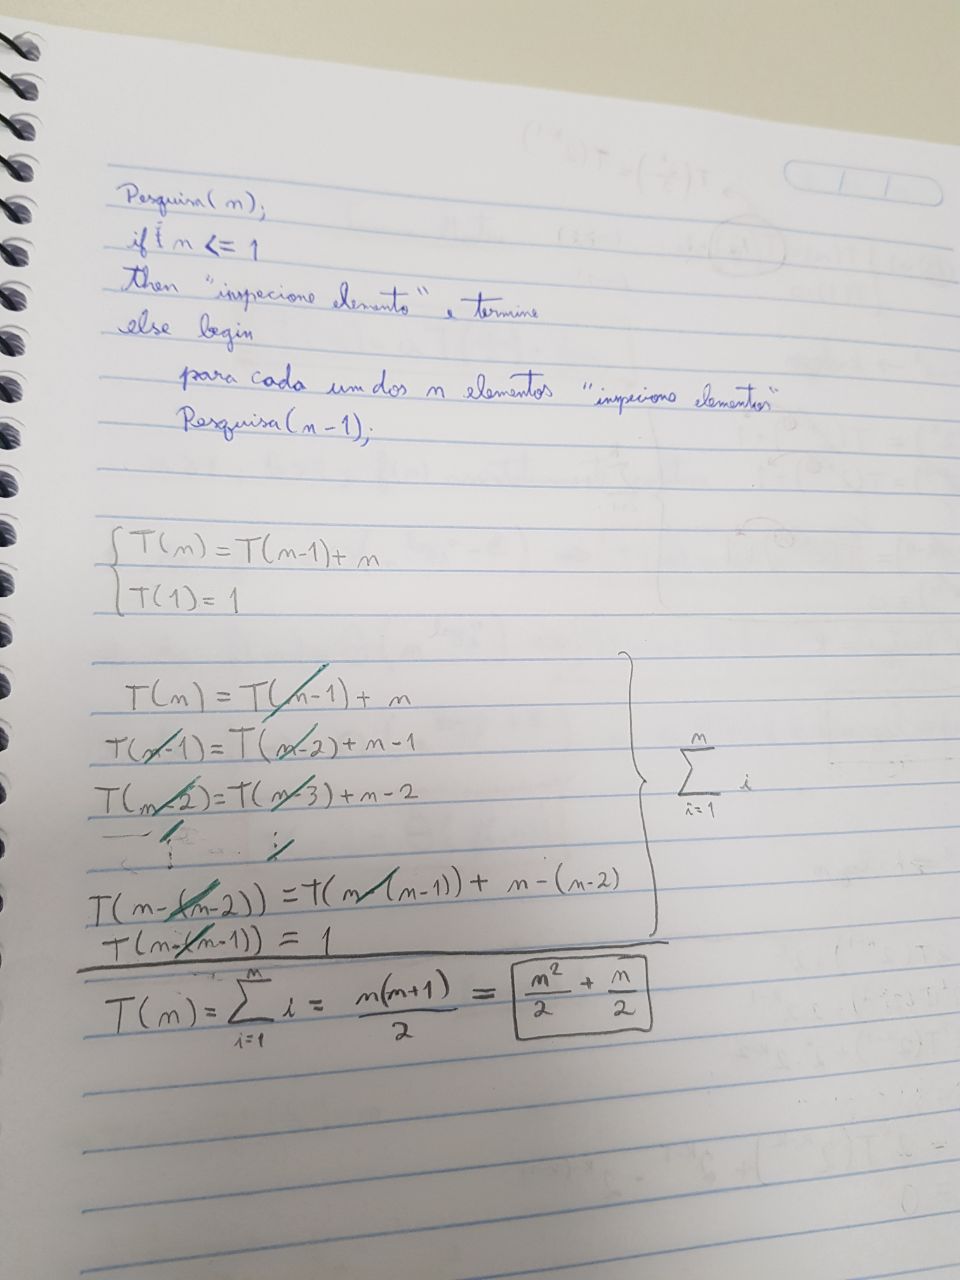 Pesquisa(n);
if n <= 1
then "inspecione elemento" e termine
else begin
para cada um dos n elementos "inspecione elementos"
Pesquisa(n-1);
T(n) = T(n-1) + n
T(1) = 1
T(n) = T(n-1) + n
T(n-1) = T(n-2) + n-1
T(n-2) = T(n-3) + n-2
∑ i=1 n i
T(n-(n-2)) = T(n-(n-1)) + n-(n-2)
T(n-(n-1)) = 1
T(n) = ∑ i=1 n i = n(n+1)/2 = n²/2 + n/2